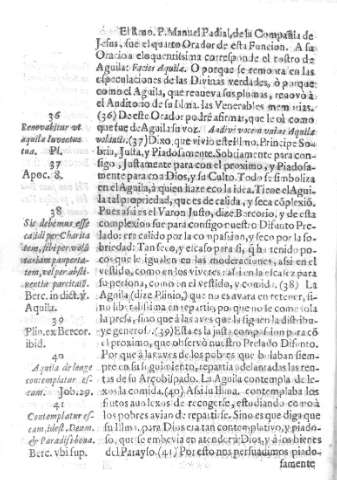 El Rmo. P. Manuel Padial, de su Compañia de
Jesus, fue el quarto Orador de esta Funcion. A su
Oracion eloquentissima corresponde el rostro de
Aguila: Facies Aquilæ. O porque se remonta en las
especulaciones de las Divinas verdades, ò porque
como el Aguila, que renueva sus plumas, renovò à
el Auditorio de su Ilma. las Venerables memorias.
(36) De este Orador podrè afirmar, que le oì como
que fue de Aguila su voz. Audivi vocem unius Aquilæ
volantis. (37) Dixo, que vivio este Ilmo. Principe Sobria,
Justa, y Piadosamente. Sobriamente para consigo,
Justamente para con el proximo, y Piadosamente
para con Dios, y su Culto. Todo se simboliza
en el Aguila, à quien haze eco la idea. Tiene el Aguila
tal propriedad, que es de calida, y seca cõplexiõ.
Pues assi es el Varon Justo, dize Bercorio, y de esta
complexion fue para consigo nuestro Difunto Prelado:
era calido por la compassion, y seco por la sobriedad:
Tan seco, y escaso para si, que ha tenido pocos
que le igualen en las moderaciones, assi en el
vestido, como en los viveres: assi en la escasez para
su persona, como en el vestido, y comida. (38) La
Aguila (dize Plinio,) que no es avara en retener, sino
liberalissima en repartir, porque no se come sola
la presa, sino que à las aves que la siguen la distribuye
generosa. (39) Esta es la justa compassion para cõ
el proximo, que observò nuestro Prelado Difunto.
Porque à las aves de los pobres que bolaban siempre
en su seguimiento, repartia adelantadas las rentas
de su Arçobispado. La Aguila contempla de lexos
la comida. (40) Assi su Ilma. contemplaba los
frutos aun lexos de recogerse, estudiando como à
los pobres avian de repartirse. Sino es que diga que
su Ilma. para Dios era tan contemplativo, y piadoso,
que se embevia en atender à Dios, y à los bienes
del Parayso. (41) Por esto nos persuadimos piadosamente
36
Renovabitur ut
aquila Iuventus
tua. Pl.
37
Apoc. 8.
38
Sic debemus esse
calidi per Charitatem,
sicci per voluntariam paupertatem,
vel per abstinentiæ
parcitatẽ.
Berc. in dict. ỹ.
Aquila.
39
Plin. ex Bercor.
ibid.
40
Aquila de longe
contemplatur escam.
Job. 29.
41
Contemplatur escam.
idest. Deum.
& Paradisi bona.
Berc. vbi sup.